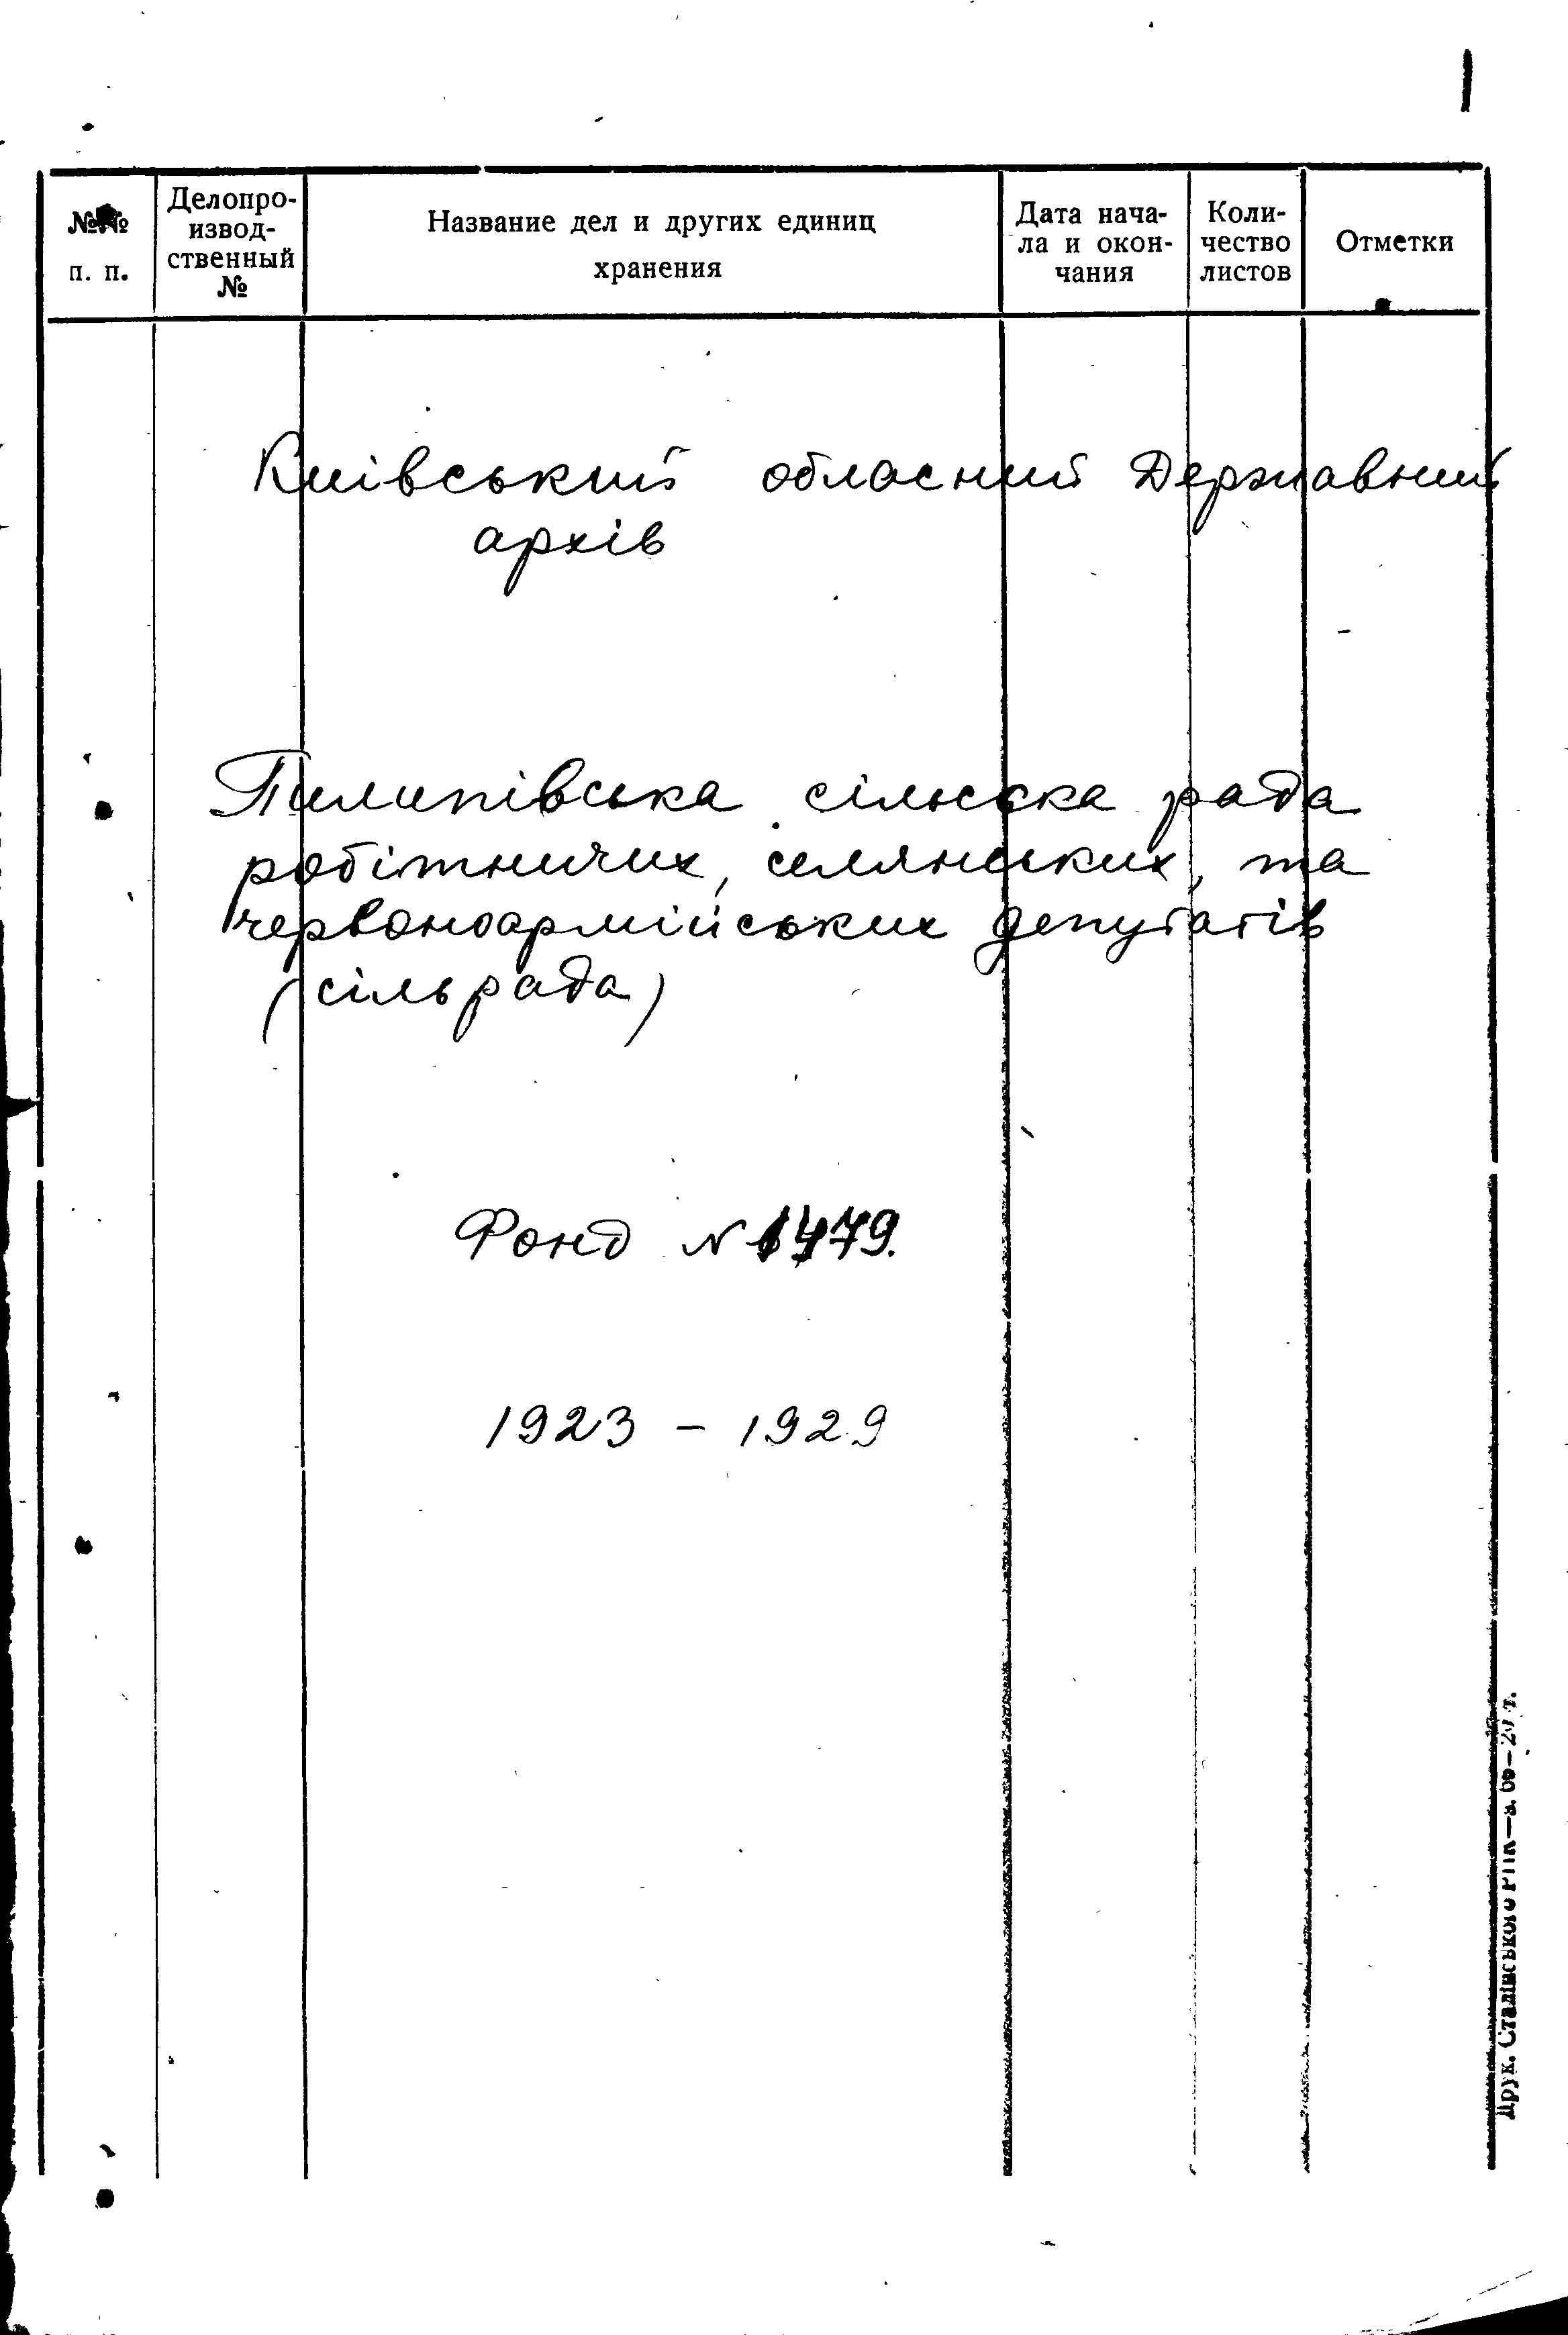 1
№№ п. п.
Делопро-
извод-
ственный
№
Название дел и других единиц
хранения
Дата нача-
ла и окон-
чания
Коли-
чество
листов
Отметки
Київський обласний Державний
архів
Пилипівська сільська рада
робітничих, селянських, та
червоноармійських депутатів
(сільрада)
Фонд N 1479.
1923 – 1929
Друк. Сталінського РПК—з. 69—20 т.